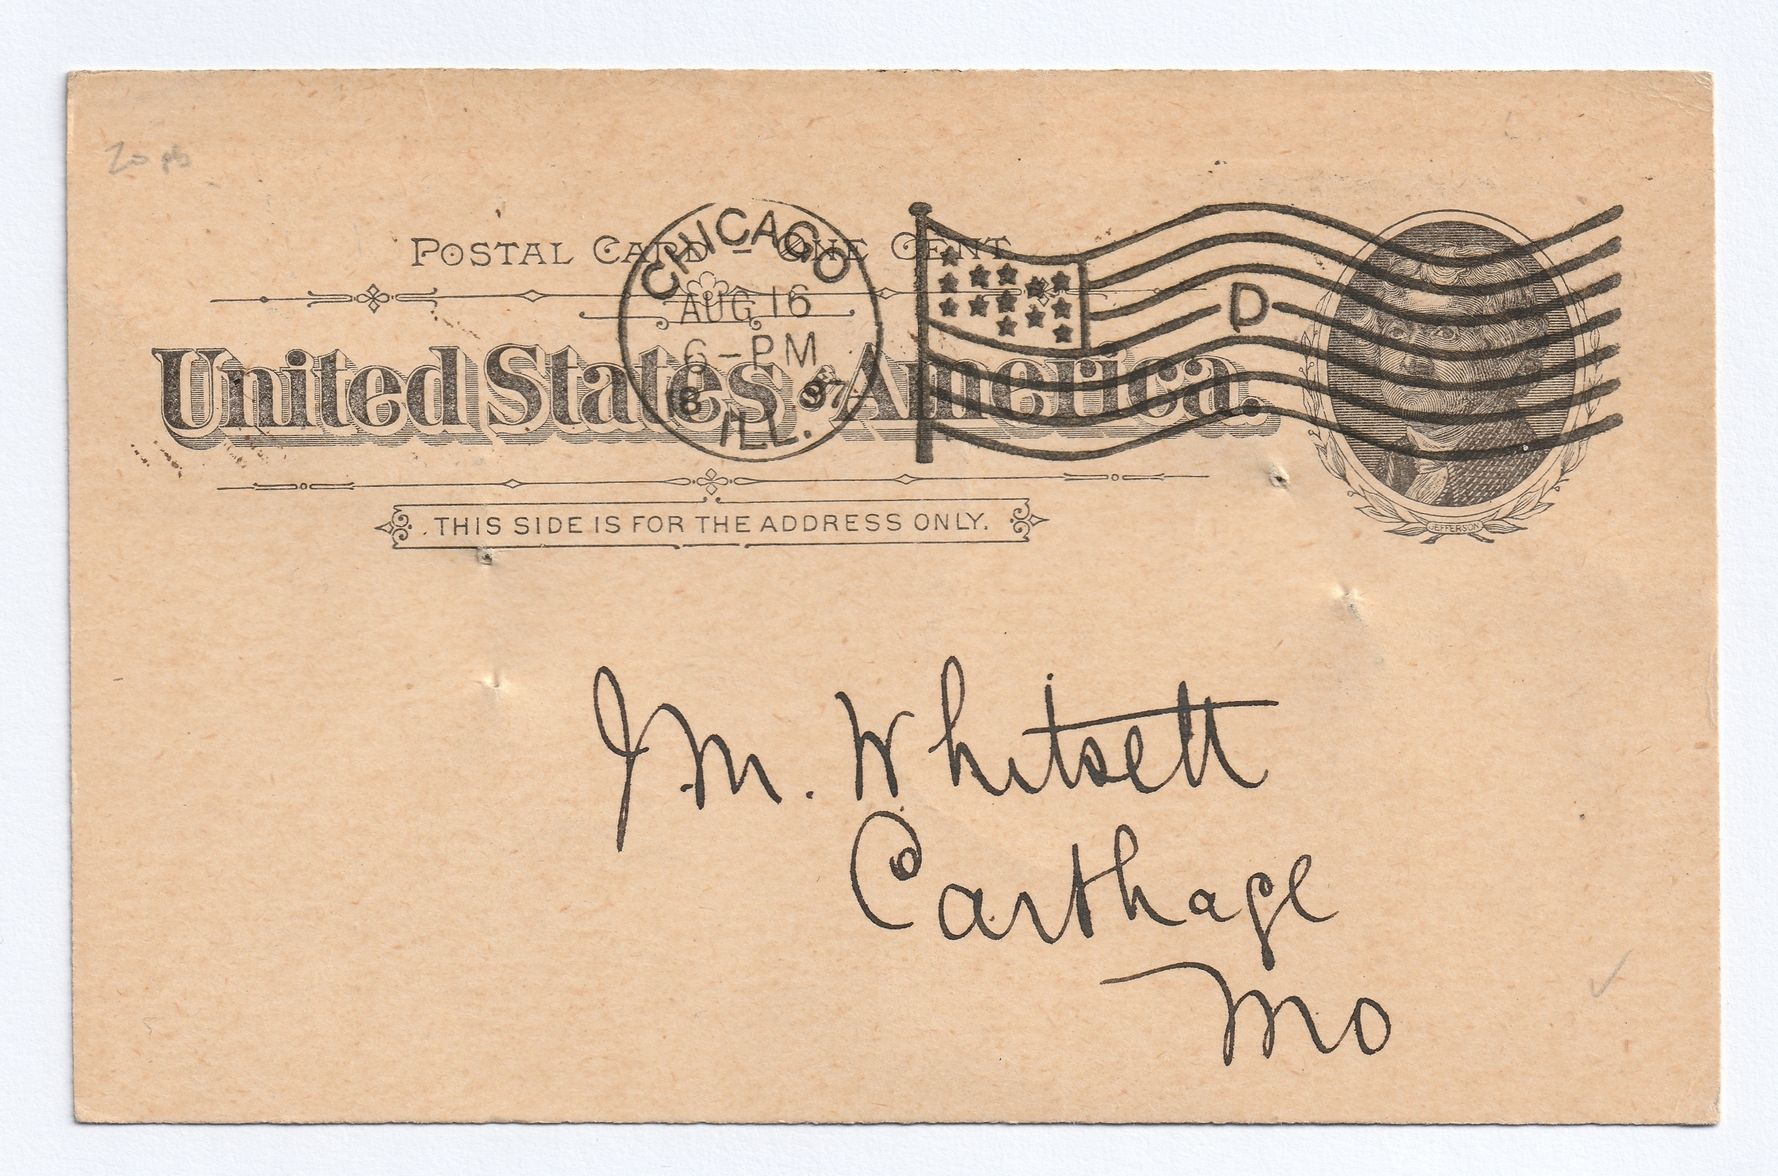 20 pb
POSTAL CARD – ONE CENT
CHICAGO
AUG 16
6-PM
97
ILL.
D
United States America.
THIS SIDE IS FOR THE ADDRESS ONLY.
JEFFERSON
J M. Whitsett
Carthage
Mo